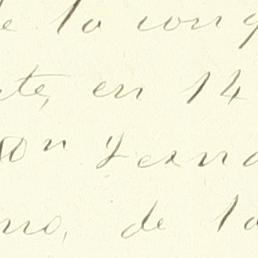 de la con
te, en 14
on Ferna
no, de la